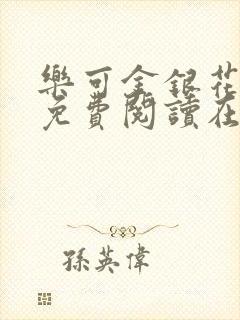 樂可金銀花
免費閱讀在
孫英偉